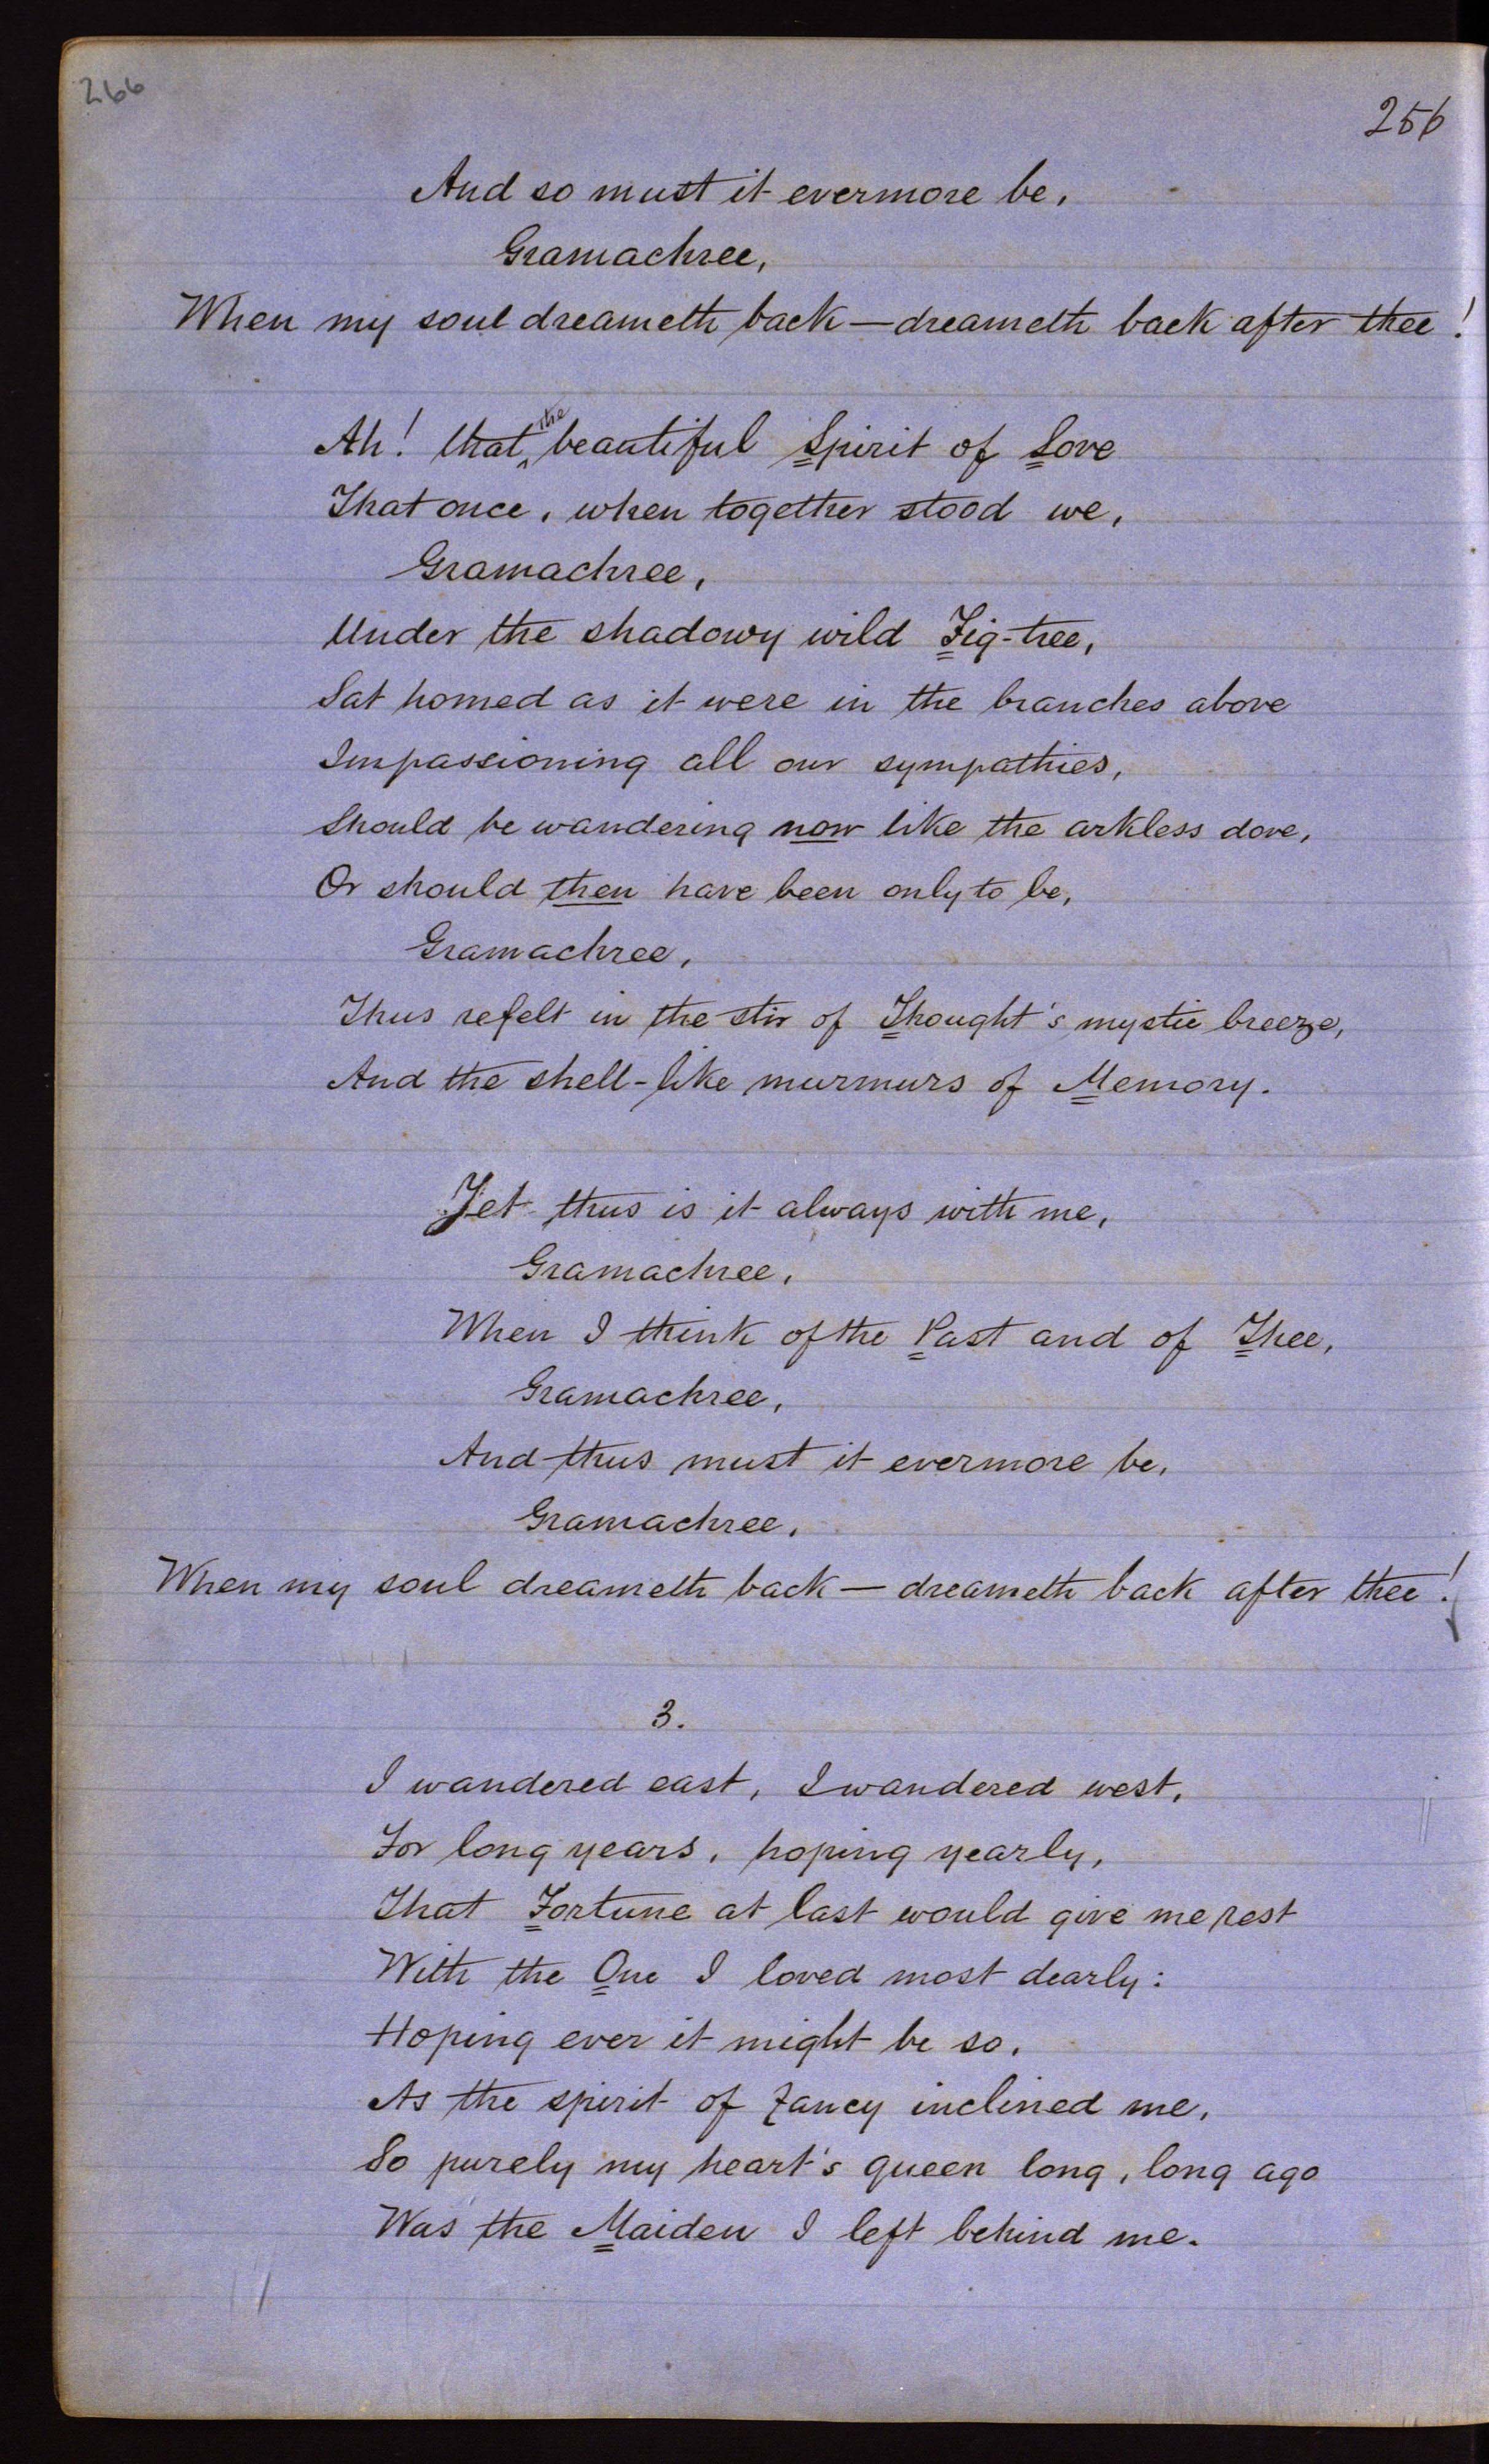 266
256
And so must it evermore be,
Gramachree,
When my soul dreameth back—dreameth back after thee!
Ah! that the beautiful Spirit of Love
That once, when together stood we,
Gramachree,
Under the shadowy wild Fig-tree,
Sat homed as it were in the branches above
Impassioning all our sympathies,
Should be wandering now like the arkless dove,
Or should then have been only to be,
Gramachree,
Thus refelt in the stir of Thought's mystic breeze,
And the shell-like murmurs of Memory.
Yet thus is it always with me,
Gramachree,
When I think of the Past and of Thee,
Gramachree,
And thus must it evermore be,
Gramachree,
When my soul dreameth back—dreameth back after thee!
3.
I wandered east, I wandered west,
For long years, hoping yearly,
That Fortune at last would give me rest
With the One I loved most dearly:
Hoping ever it might be so,
As the spirit of fancy inclined me,
So purely my heart's queen long, long ago
Was the Maiden I left behind me.